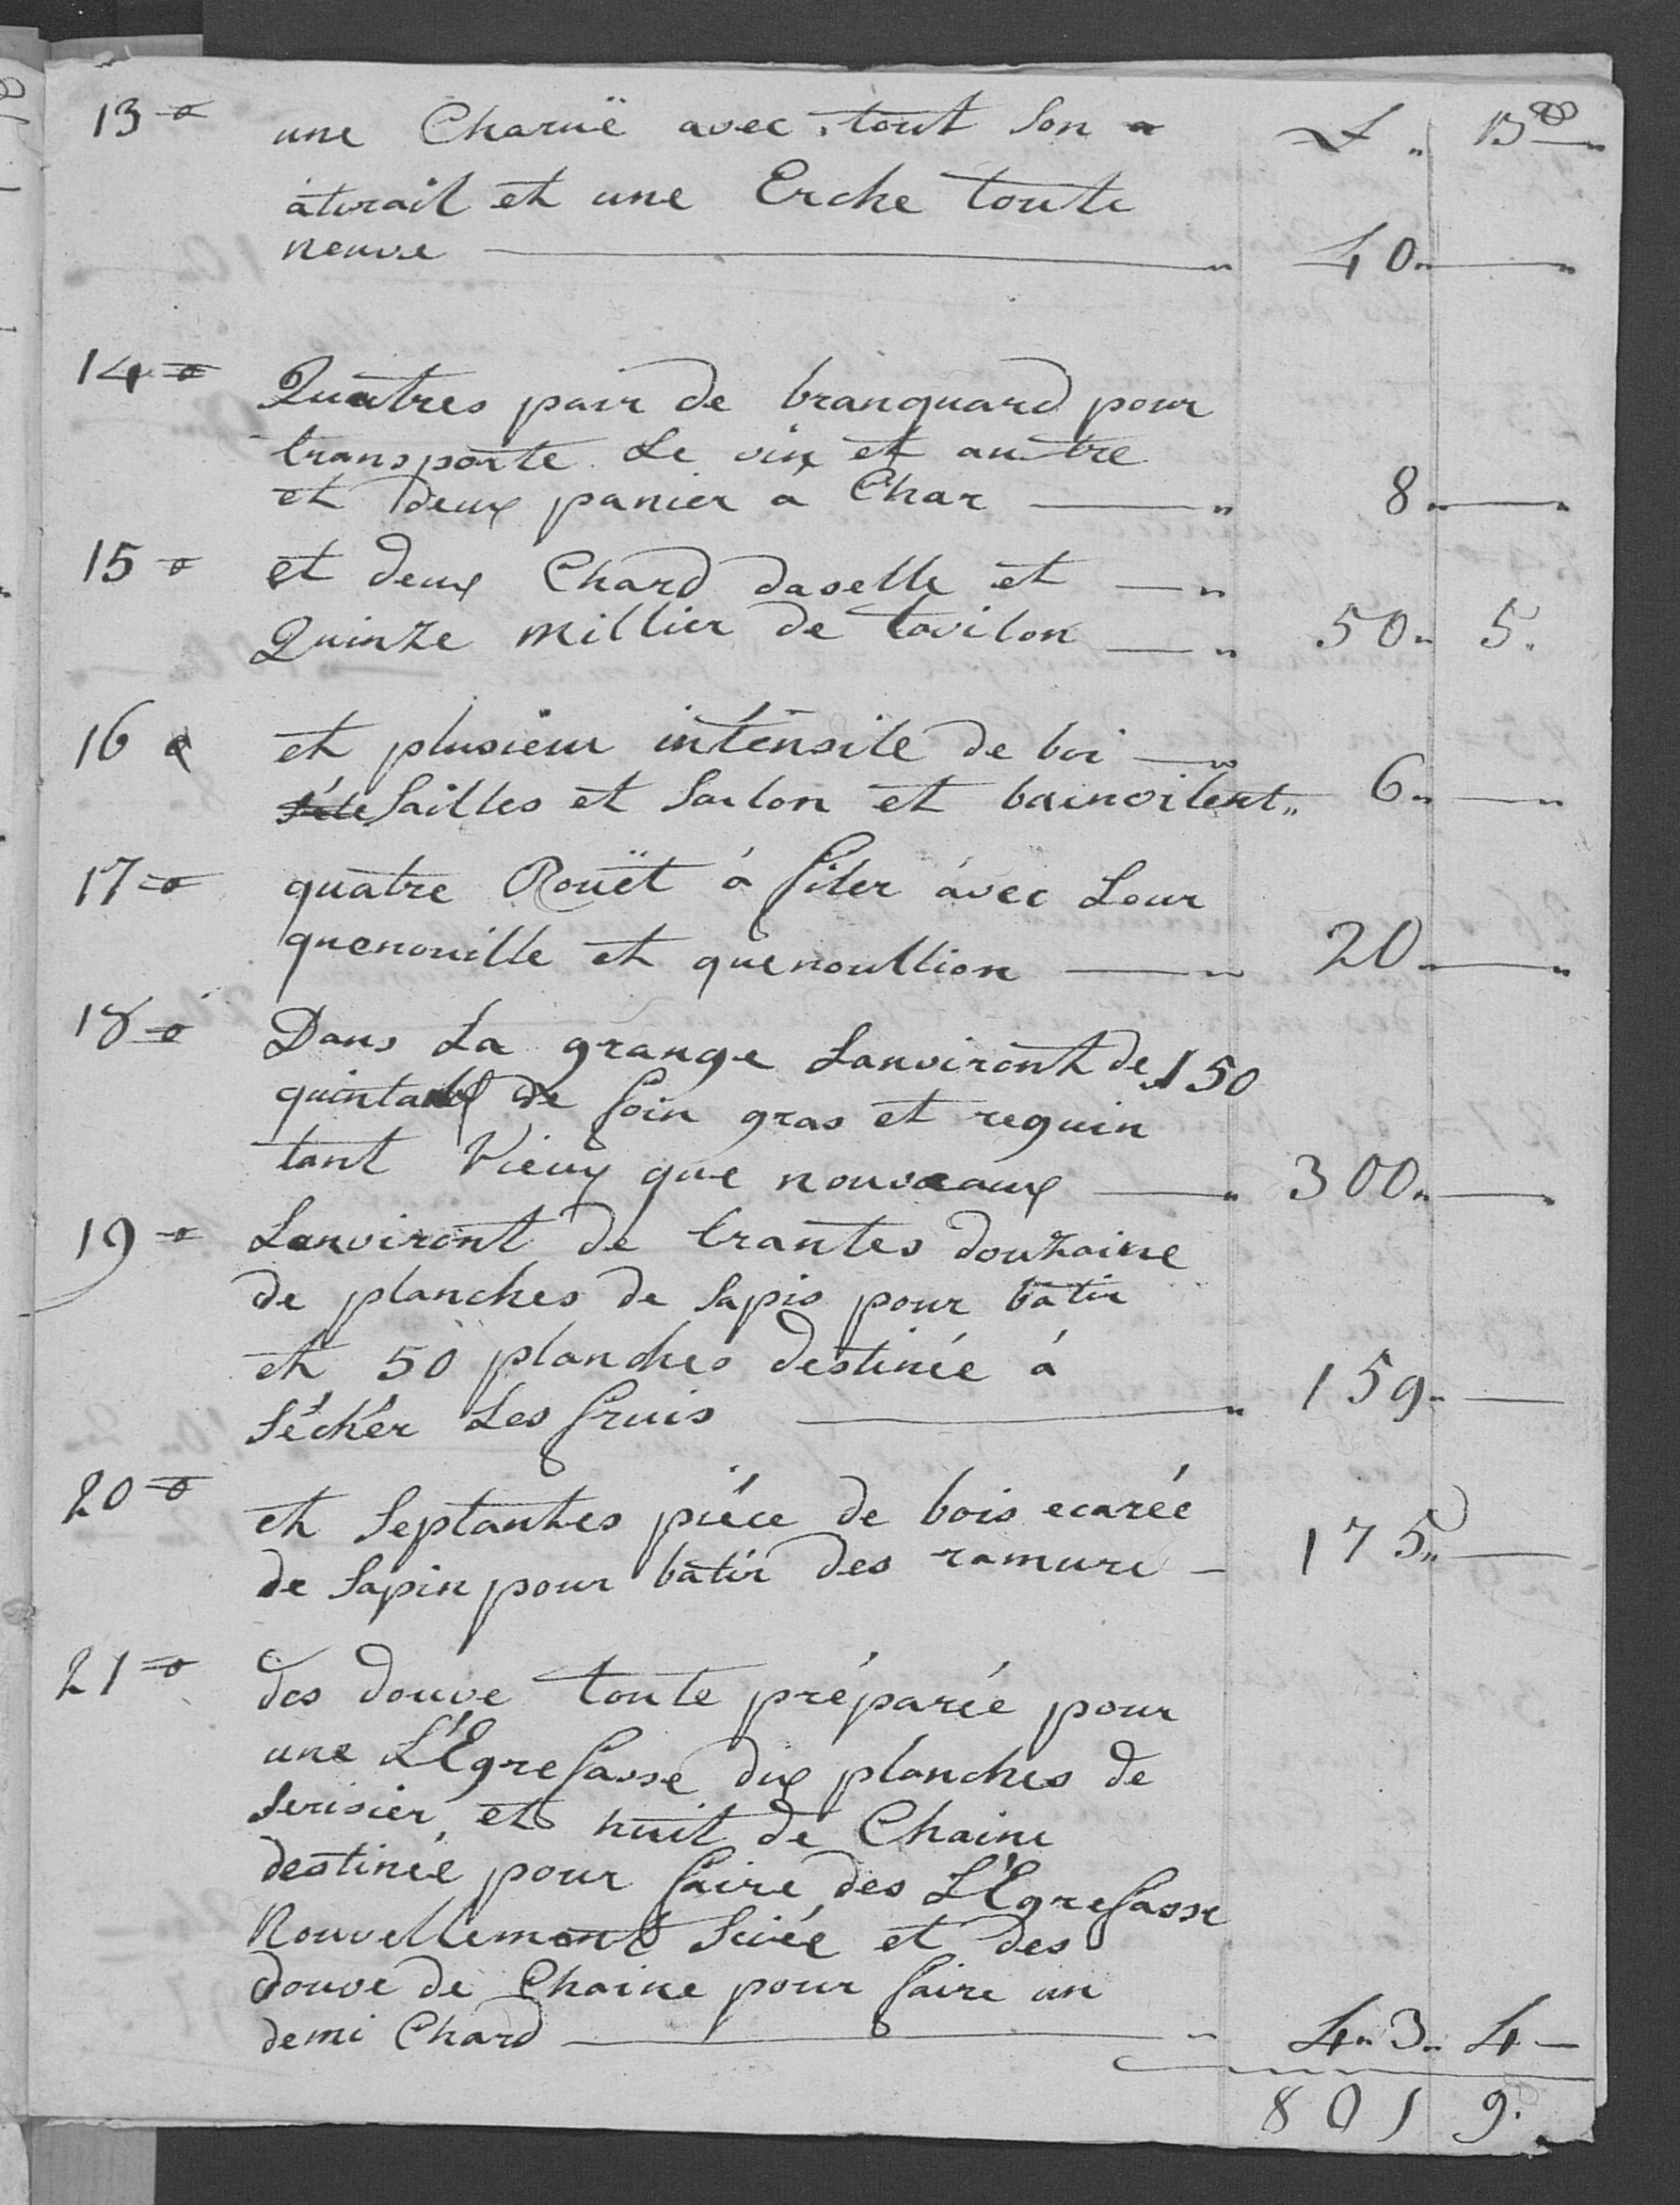 13 une Charuë avec tout son L Bz
aturail et une Erche toute
neuve 40
14 Quatres pair de branquard pour
transporte Le vin et autre
et deux panier a Char 8
15 et deux Chard daselle et
Quinze millier de tavilon 50 5
16 et plusieur intensile de boi
sailles et sailon et 6
17 quatre Rouët á filer ávec Leur
quenouille et quenoullion 20
18 Dans La grange Lanviront de 150
quintals de foin gras et reguin
tant Vieux que nouveaux 300
19 Lanviront de trantes douzaine
de planches de sapis pour bâtir
et 50 planches destinée á
séchér Les fruis 159
20 et septantes piéce de bois ecarée
de sapin pour bâtir des ramure 175
21 des douve toute préparée pour
une L'Égrefasse dix planches de
serisier et huit de Chaine
destinée pour faire des L'Égrefasse
Nouvellement siiée et des
douve de Chaine pour faire un
demi Chard 43 4
801 9